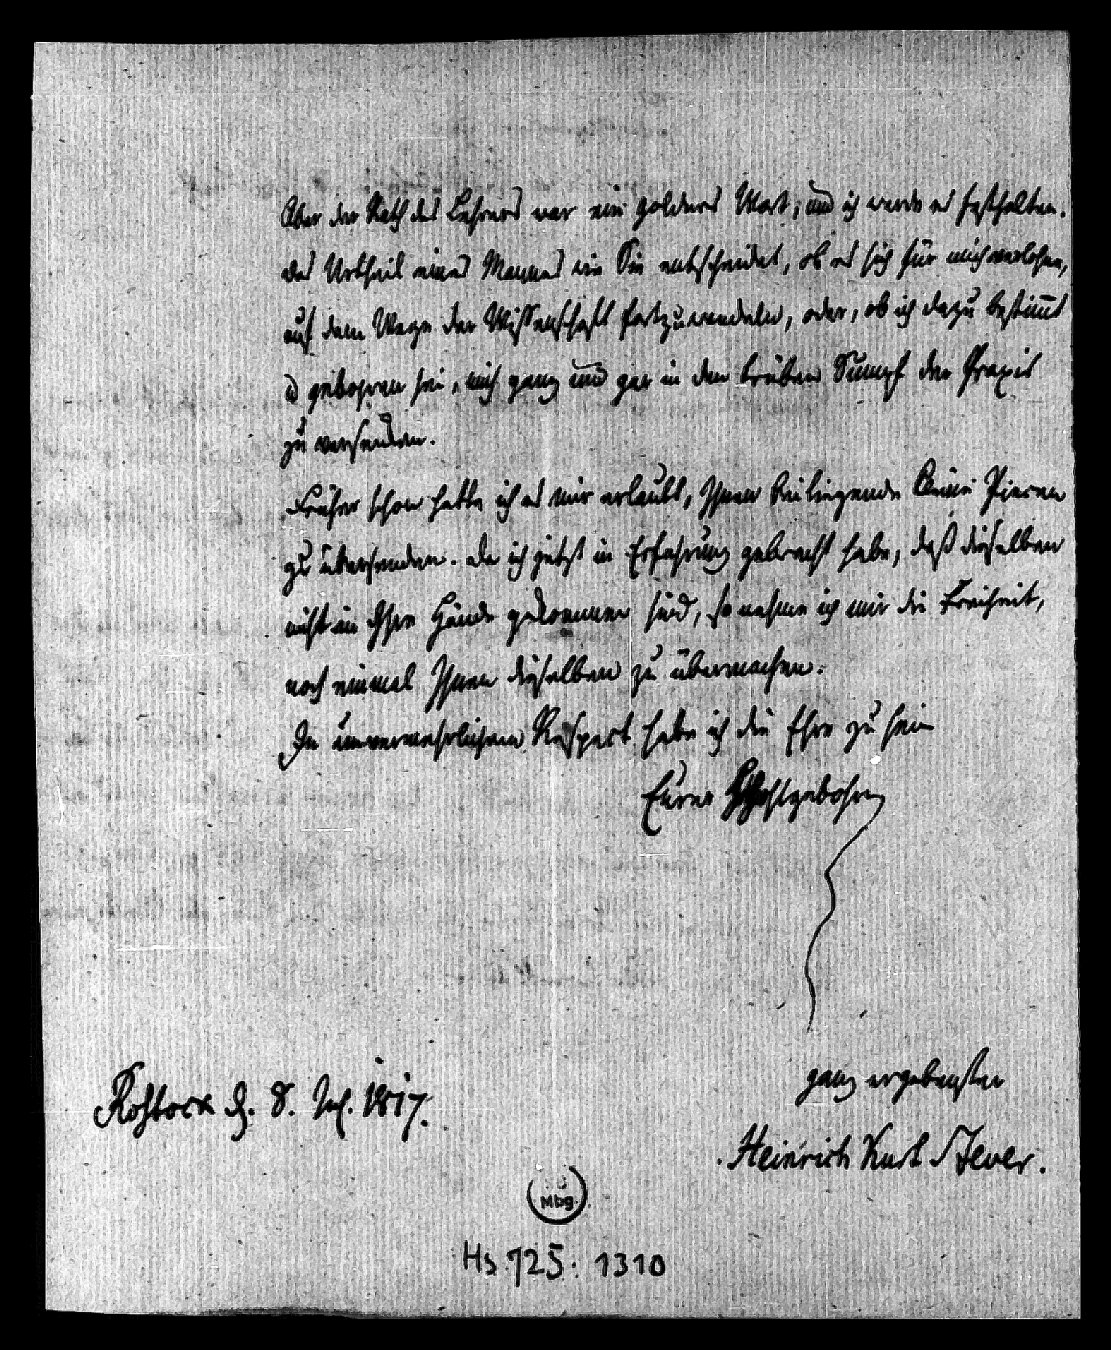 Aber der Rath des Lehrers war ein goldenes Wort, und ich werde es festhalten.
das Urtheil eines Mannes wie Sie entscheidet, ob es sich für mich verlohne,
auf dem Wege der Wissenschaft fortzuwandeln, oder, ob ich dazu bestimt
u gebohren sei, mich ganz und gar in den trüben Sumpf der Praxis
zu versenken.
Früher schon hatte ich es mir erlaubt, Ihnen beiliegende kleine Pieren
zu übersenden. da ich jetzt in Erfahrung gebracht habe, daß dieselben
nicht in Ihre Hände gekommen sind, so nehme ich mir die Freiheit,
noch einmal Ihnen dieselben zu übermachen.
In Respect habe ich die Ehre zu sein
Eurer Wohlgebohrn
ganz ergebenster
Rostock d. 8. 1817.
Heinrich Kurt Stever.
Mbg.
Hs. 725. 1310